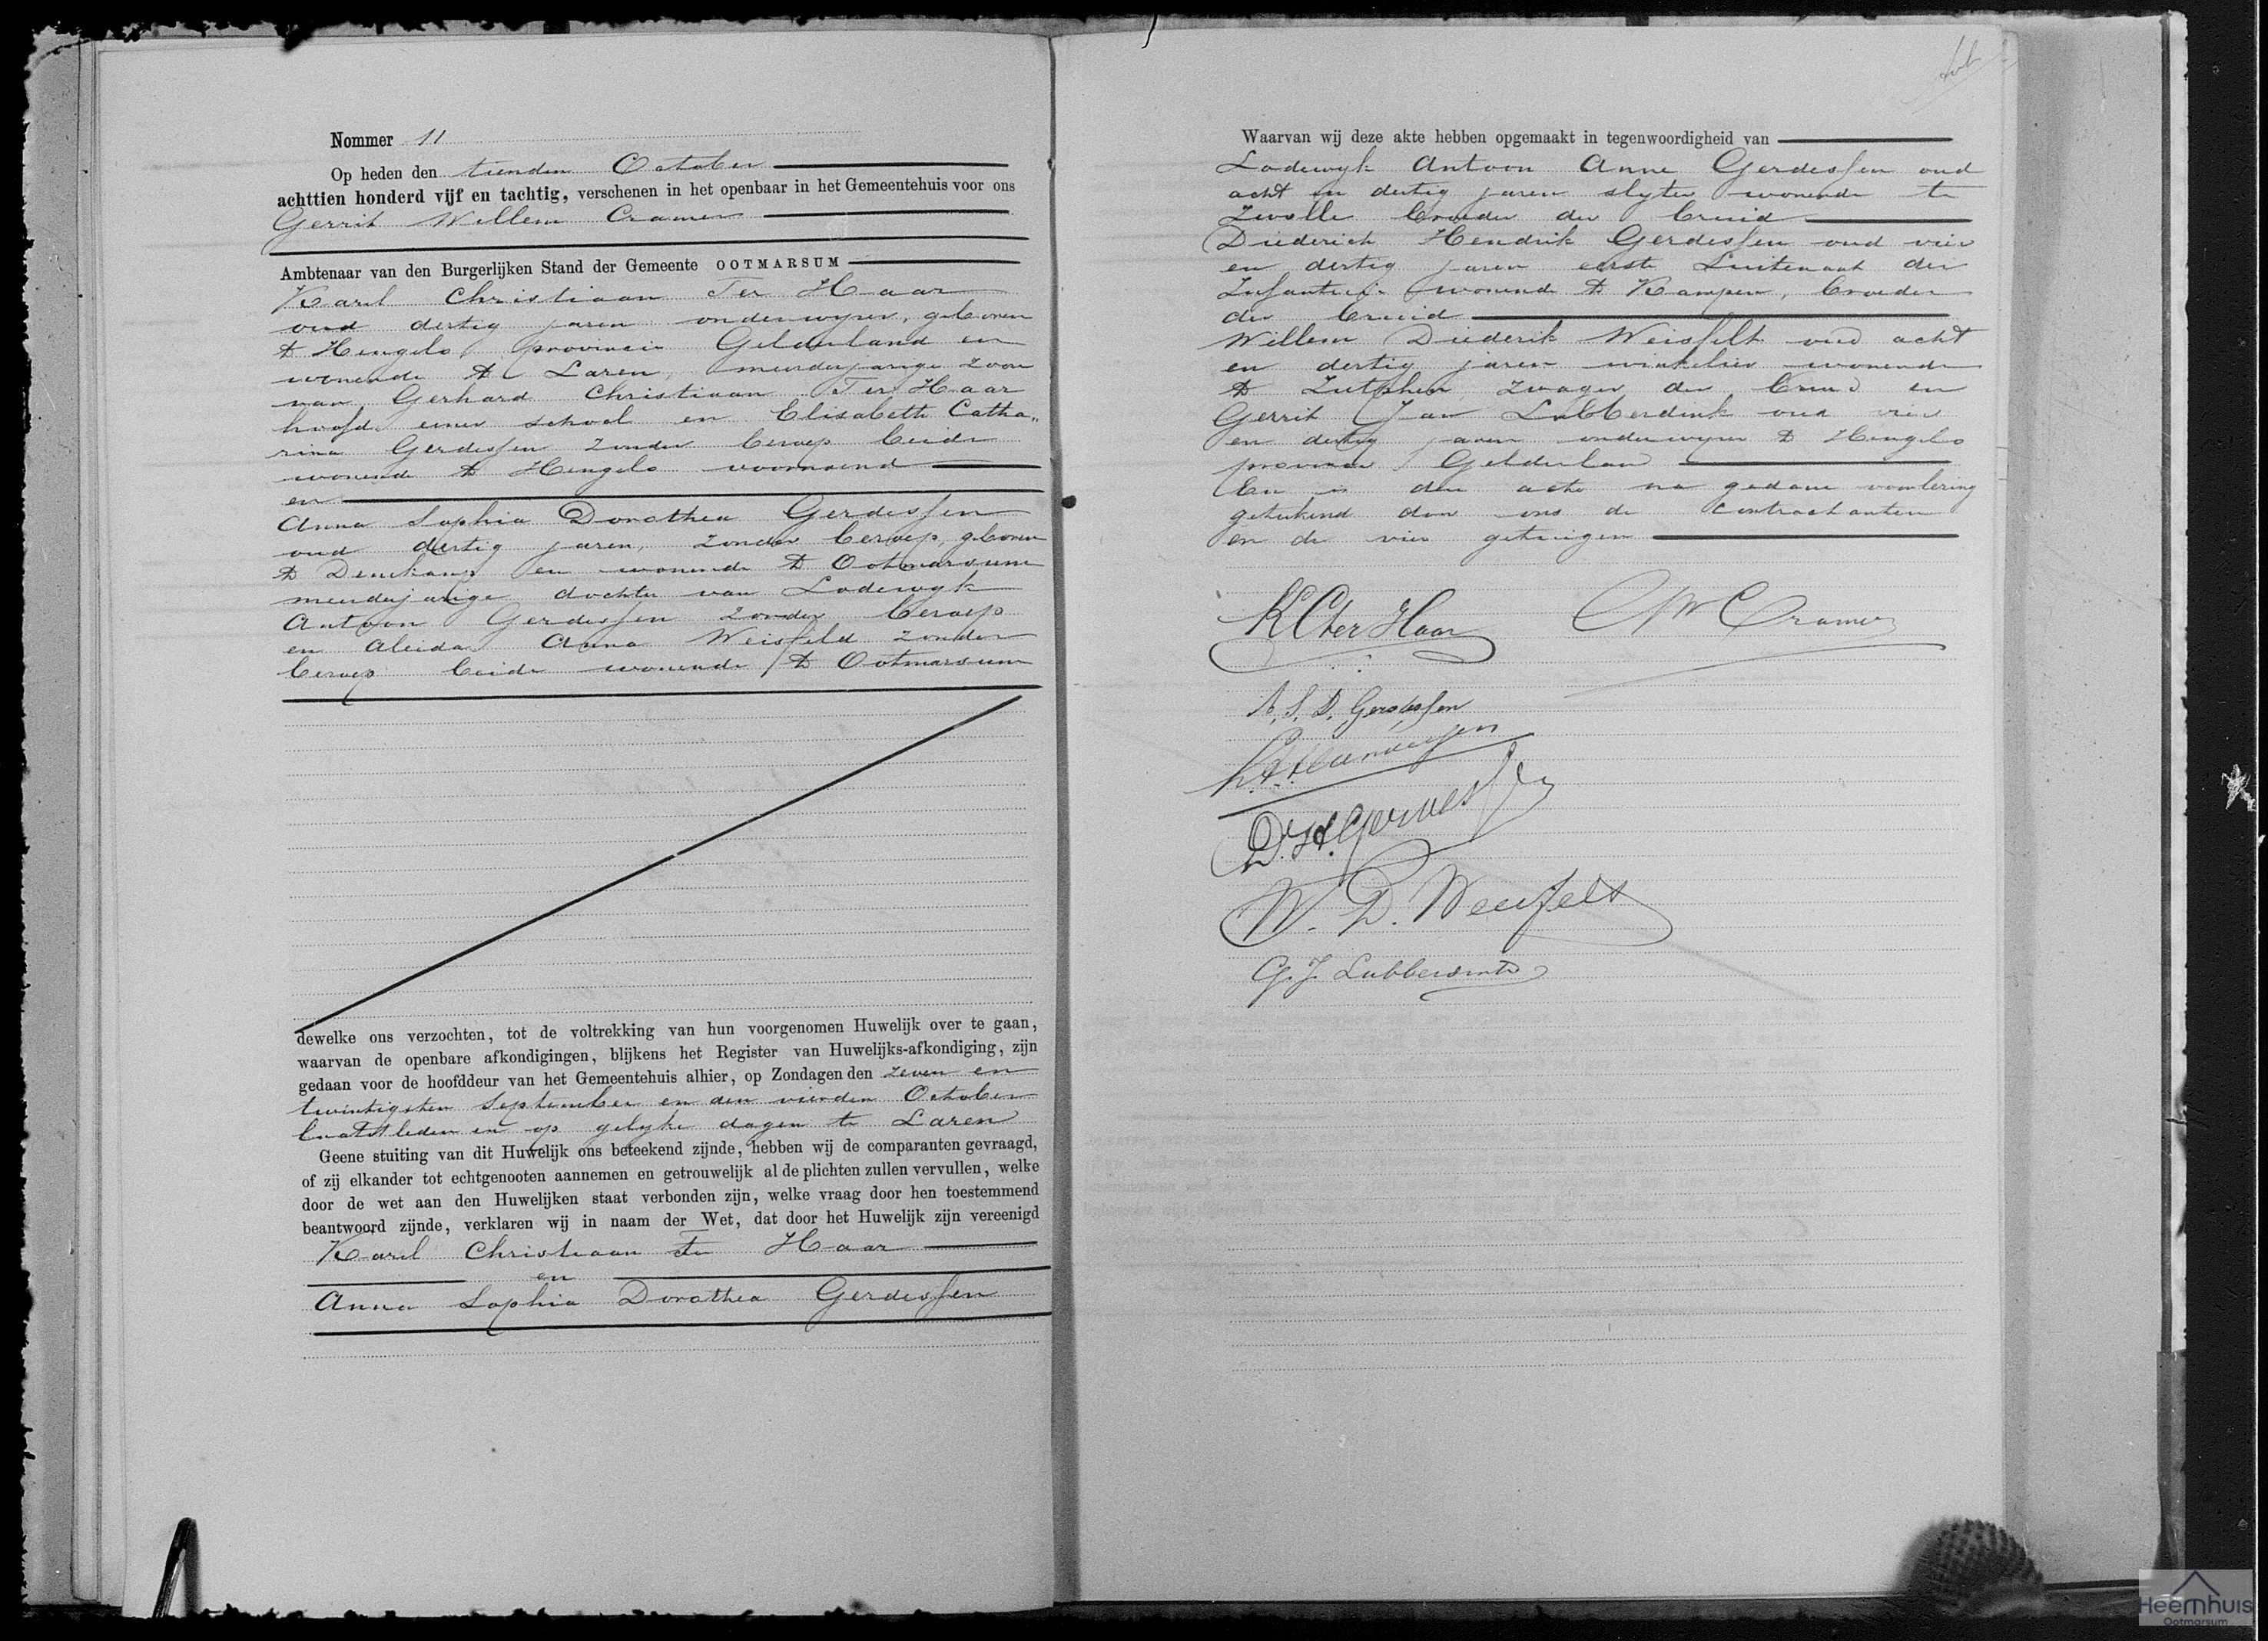 Nommer 11
Op heden den tienden October
achttien honderd vijf en tachtig, verschenen in het openbaar in het Gemeentehuis voor ons
Gerrit Willem Cramer
Ambtenaar van den Burgerlijken Stand der Gemeente OOTMARSUM
Karel Christiaan Ter Haar
oud dertig jaren onderwyzer, geboren
te Hengelo provincie Gelderland en
wonende te Laren, meerderjarige zoon
van Gerhard Christiaan Ter Haar
hoofd eener school en Elisabeth Catha„
rina Gerdessen zonder beroep beide
wonend te Hengelo voornoemd
en
Anna Sophia Dorothea Gerdessen
oud dertig jaren, zonder beroep, geboren
te Denekamp en wonende te Ootmarsum
meerderjarige dochter van Lodewyk
Antoon Gerdessen zonder beroep
en Aleida Anna Weisfeld zonder
beroep beide wonende te Ootmarsum
dewelke ons verzochten, tot de voltrekking van hun voorgenomen Huwelijk over te gaan,
waarvan de openbare afkondigingen, blijkens het Register van Huwelijks-afkondiging, zijn
gedaan voor de hoofddeur van het Gemeentehuis alhier, op Zondagen den zeven en
twintigsten September en den vierden October
laatstleden en op gelyke dagen te Laren
Geene stuiting van dit Huwelijk ons beteekend zijnde, hebben wij de comparanten gevraagd,
of zij elkander tot echtgenooten aannemen en getrouwelijk al de plichten zullen vervullen, welke
door de wet aan den Huwelijken staat verbonden zijn, welke vraag door hen toestemmend
beantwoord zijnde, verklaren wij in naam der Wet, dat door het Huwelijk zijn vereenigd
Karel Christiaan Ter Haar
en
Anna Sophia Dorothea Gerdessen
Waarvan wij deze akte hebben opgemaakt in tegenwoordigheid van
Lodewyk Antoon Anne Gerdessen oud
acht en dertig jaren slyter wonende te
Zwolle broeder der bruid
Diederich Hendrik Gerdessen oud vier
en dertig jaren eerste Luitenant der
Infanterie wonend te Kampen, broeder
der bruid
Willem Diederik Weisfelt oud acht
en dertig jaren winkelier wonende
te Zutphen, zwager der bruid en
Gerrit Jan Lubberdink oud vier
en dertig jaren onderwyzer te Hengelo
provincie Gelderland
En is deze acte na gedane voorlezing
geteekend door ons de contractanten
en de vier getuigen
KC ter Haar
GW Cramer
A. S. D. Gerdessen
D. H. Gerdessen
W. D. Weisfelt
G. J. Lubberdink
Heemhuis
Ootmarsum